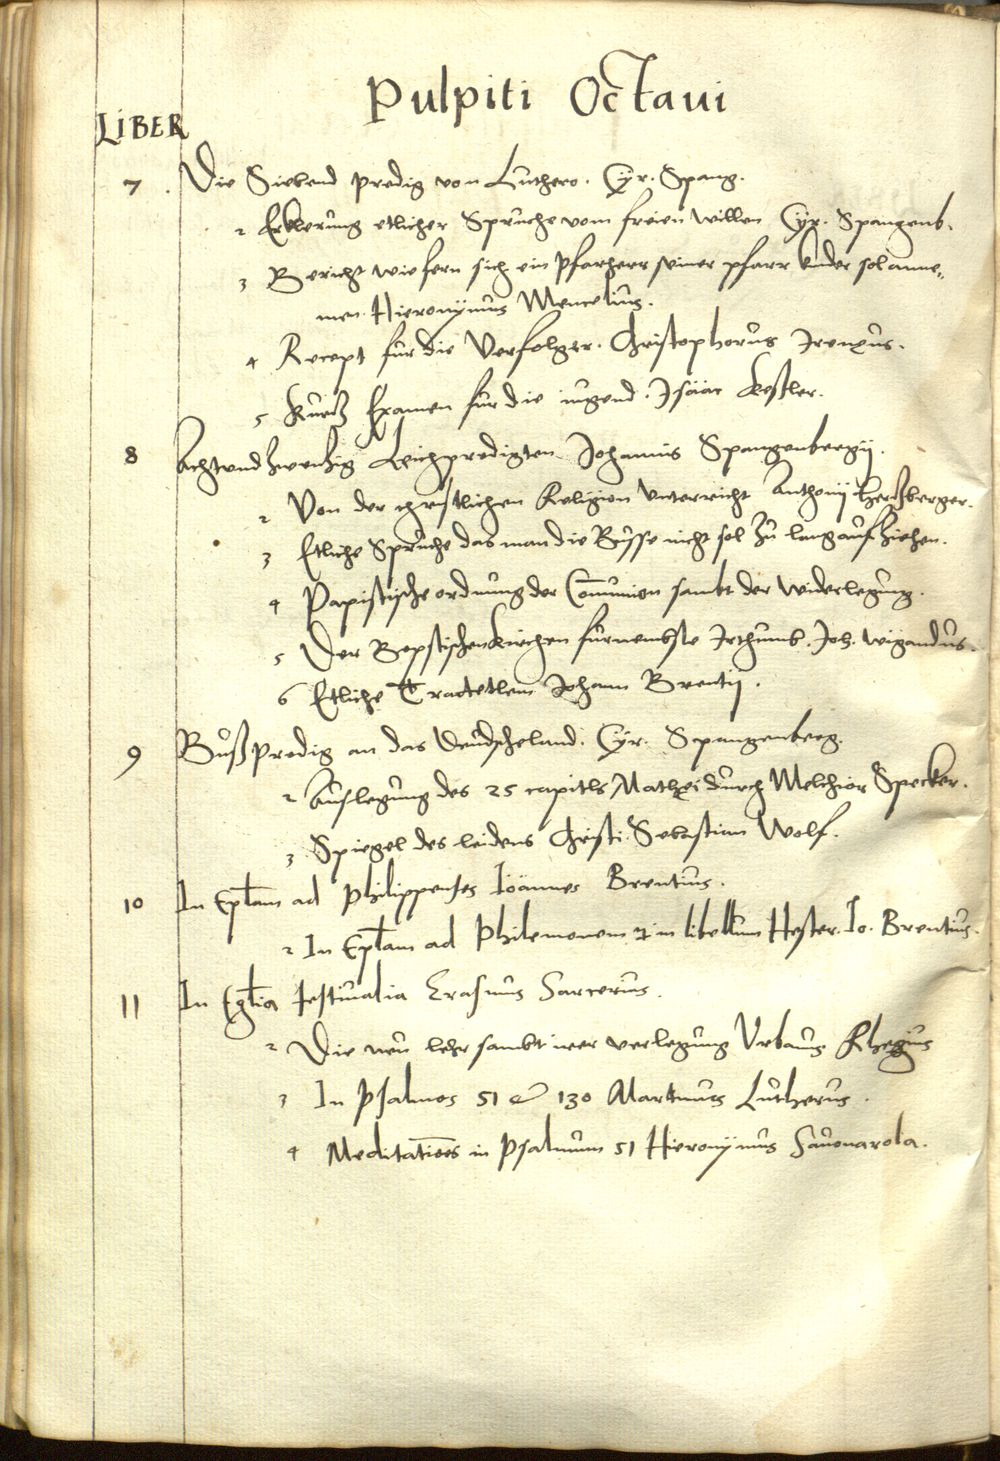 Pulpiti Octaui
LIBER
7 . Die Siebend predig von Luthero. Cyr. Spang.
2 Erklerung etlicher Spruche vom freien willen Cyr. Spangenb.
3 Bericht wie fern sich ein Pfarherr seiner pfarr kinder sol anne„
men. Hieronymus Mencelius.
4 Recept fur die Verfolger. Christophorus Irenęus.
5 Kurtz Examen fur die iugend. Isaac Keßler.
8 Acht vnd zwentzig Leichpredigten Johannis Spangenbergij.
2 Von der christlichen Religion vnterricht Anthonij Hertzberger.
3 Etliche Spruche das man die Busse nicht sol zu lang auf ziehen.
4 Papistische ordnung der Com̄union sambt der widerlegung.
5 Der Bepstischen Kirchen furnembste Irthumb. Joh. Wigandus.
6 Etliche Tractetlein Johann Brentij.
9 Bußpredig an das Deudscheland. Cyr. Spangenberg.
2 Auslegung des 25 capitls Mathęi durch Melchior Specker.
3 Spiegel des leidens Christi. Sebastian Wolf.
10 In Ep̄lam ad Philippenses Ioannes Brentius.
2 In Ep̄lam ad Philemonem & in libellum Hester. Io. Brentius.
11 In Eu̅glia festiualia Erasmus Sarcerius.
2 Die neu lehr sambt irer verlegung Vrbanus Rhegius
3 In Psalmos 51 & 130 Martinus Lutherus.
4 Meditatio̅es in Psalmum 51 Hieronymus Sauonarola.